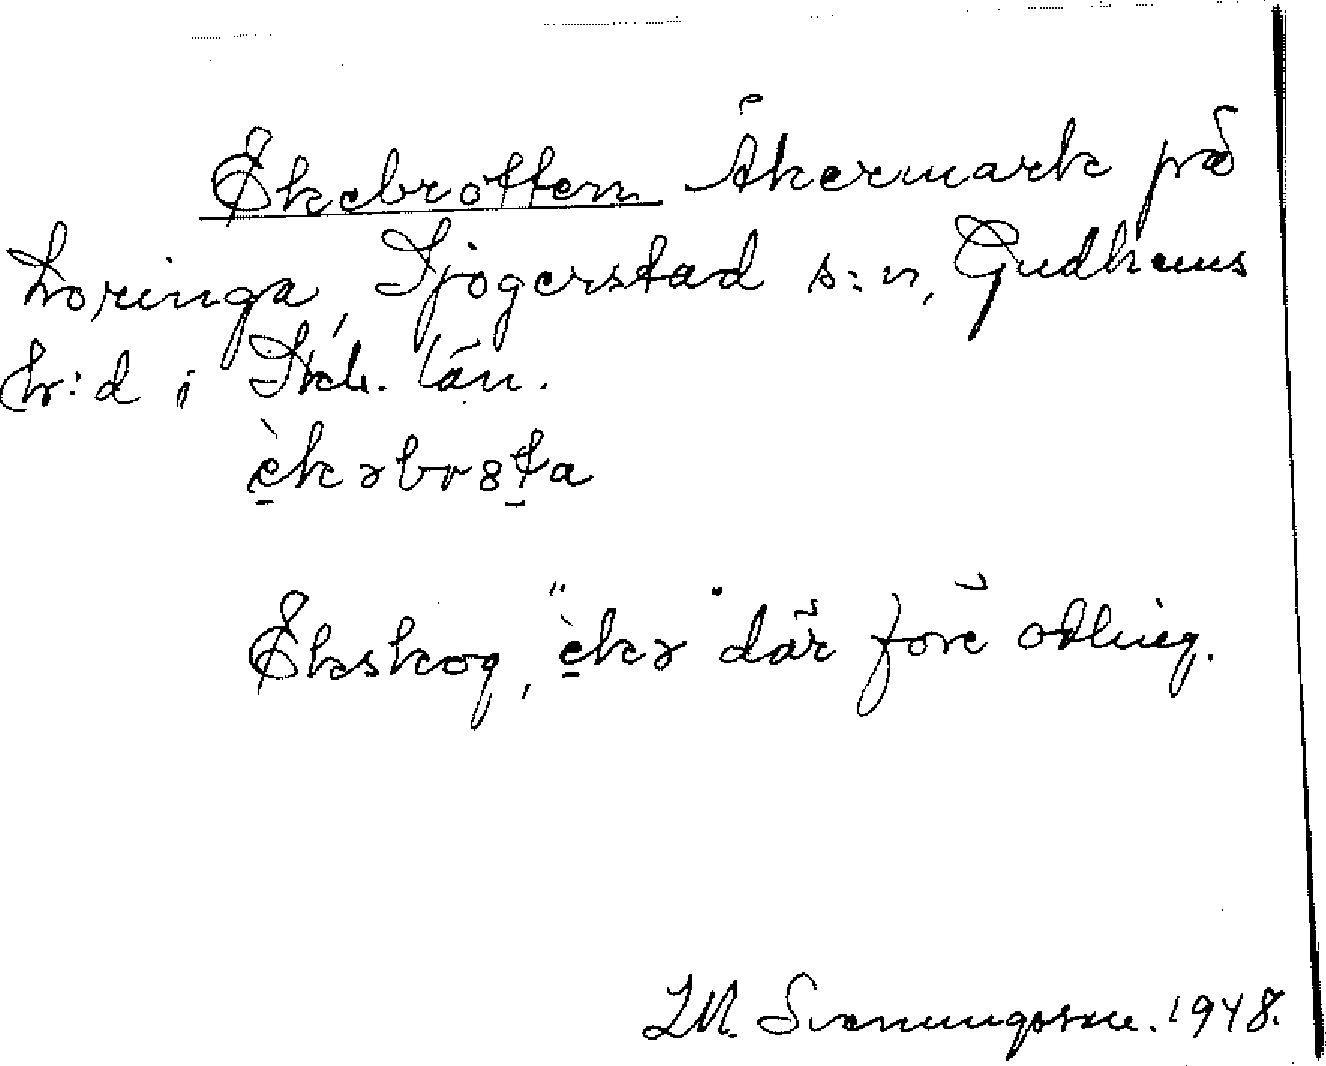 Ekebrotten Åkermark på
Loringa, Sjogerstad s:n, Gudhems
h:d i Skb. län.
èkəbr8ta
Ekskog, "èkə" där före odling.
Svenungsson. 1948.